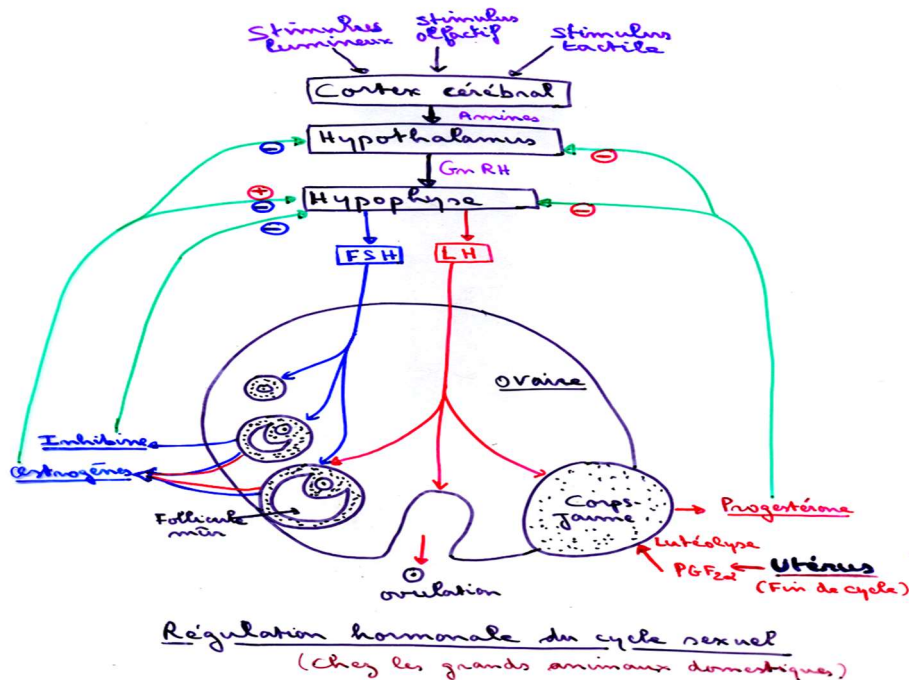 Stimulus
lumineux
Stimulus
olfactif
Stimulus
tactile
Cortex cérébral
Amines
Hypothalamus
- -
GnRH
+
- -
Hypophyse
-
FSH
LH
Ovaire
Inhibine
Œstrogènes
Follicule
mûr
ovulation
Corps-
jaune
Progestérone
Lutéolyse
PGF2α
Utérus
(Fin de cycle)
Régulation hormonale du cycle sexuel
(Chez les grands animaux domestiques)